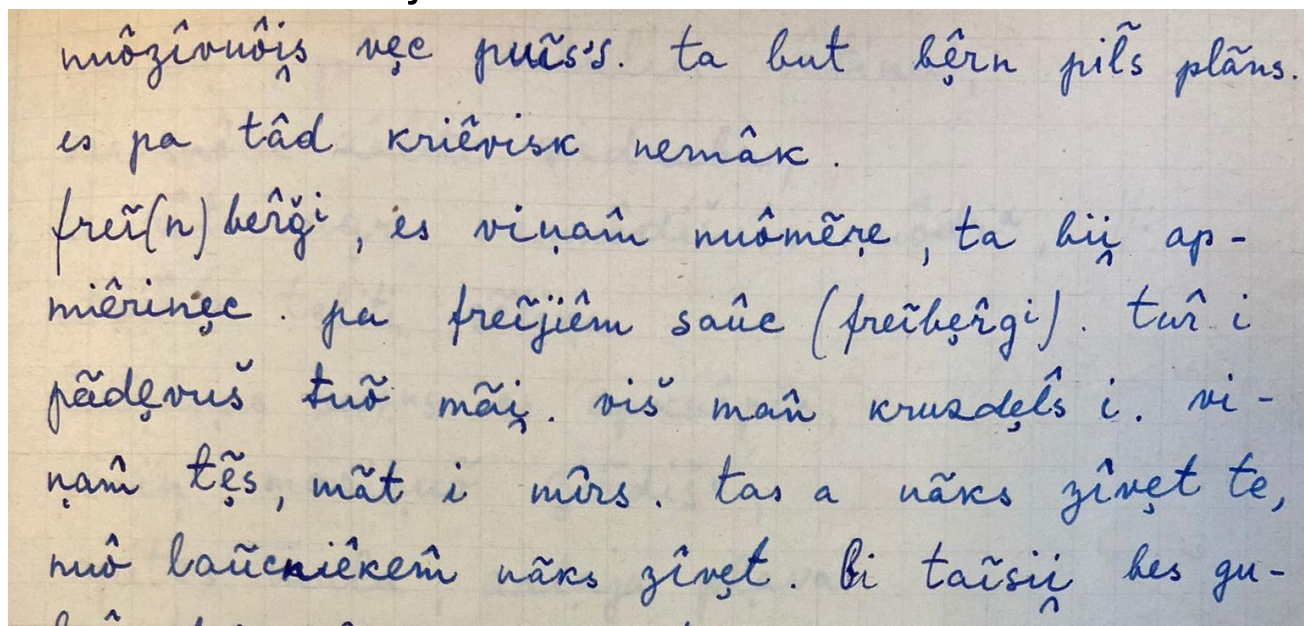 nuôzîvuôi̯s vę̄c puĩs's. ta but bę̄̂rn pil̃s plãns.
es pa tâd kriêvisk nemâk.
freĩ(n)ber̂ǧⁱ, es viņam̂ nuômẽŗe, ta bii̯ ap-
miêrinęc. pa freĩjiêm saûc (freĩbęr̂gⁱ). tur̂ i
pãdęvuš tuõ mãi̯. viš mañ kruzdęl̂s i. vi-
ņam̂ tę̃s, mãt i mîrs. tas a nãks zîvęt te,
nuô laũcniêkem̂ nãks zîvęt. bi taĩsii̯ bes gu-